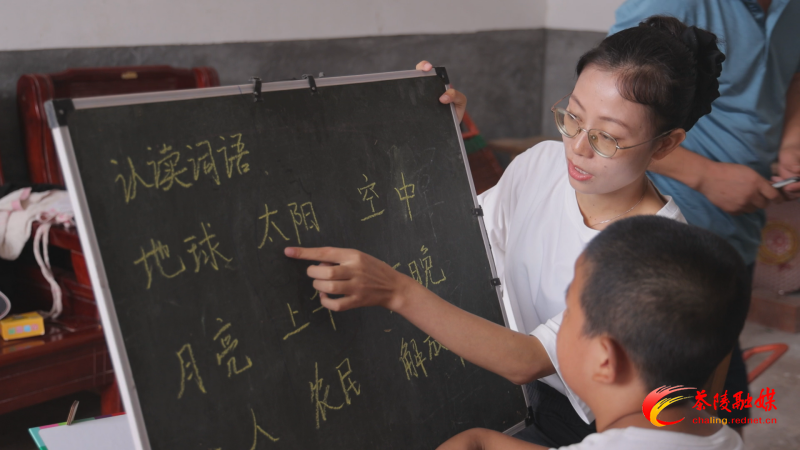 认读词语
地球 太阳 空中
上午 晚
月亮
人 农民 解放
茶陵融媒
chaling.rednet.cn